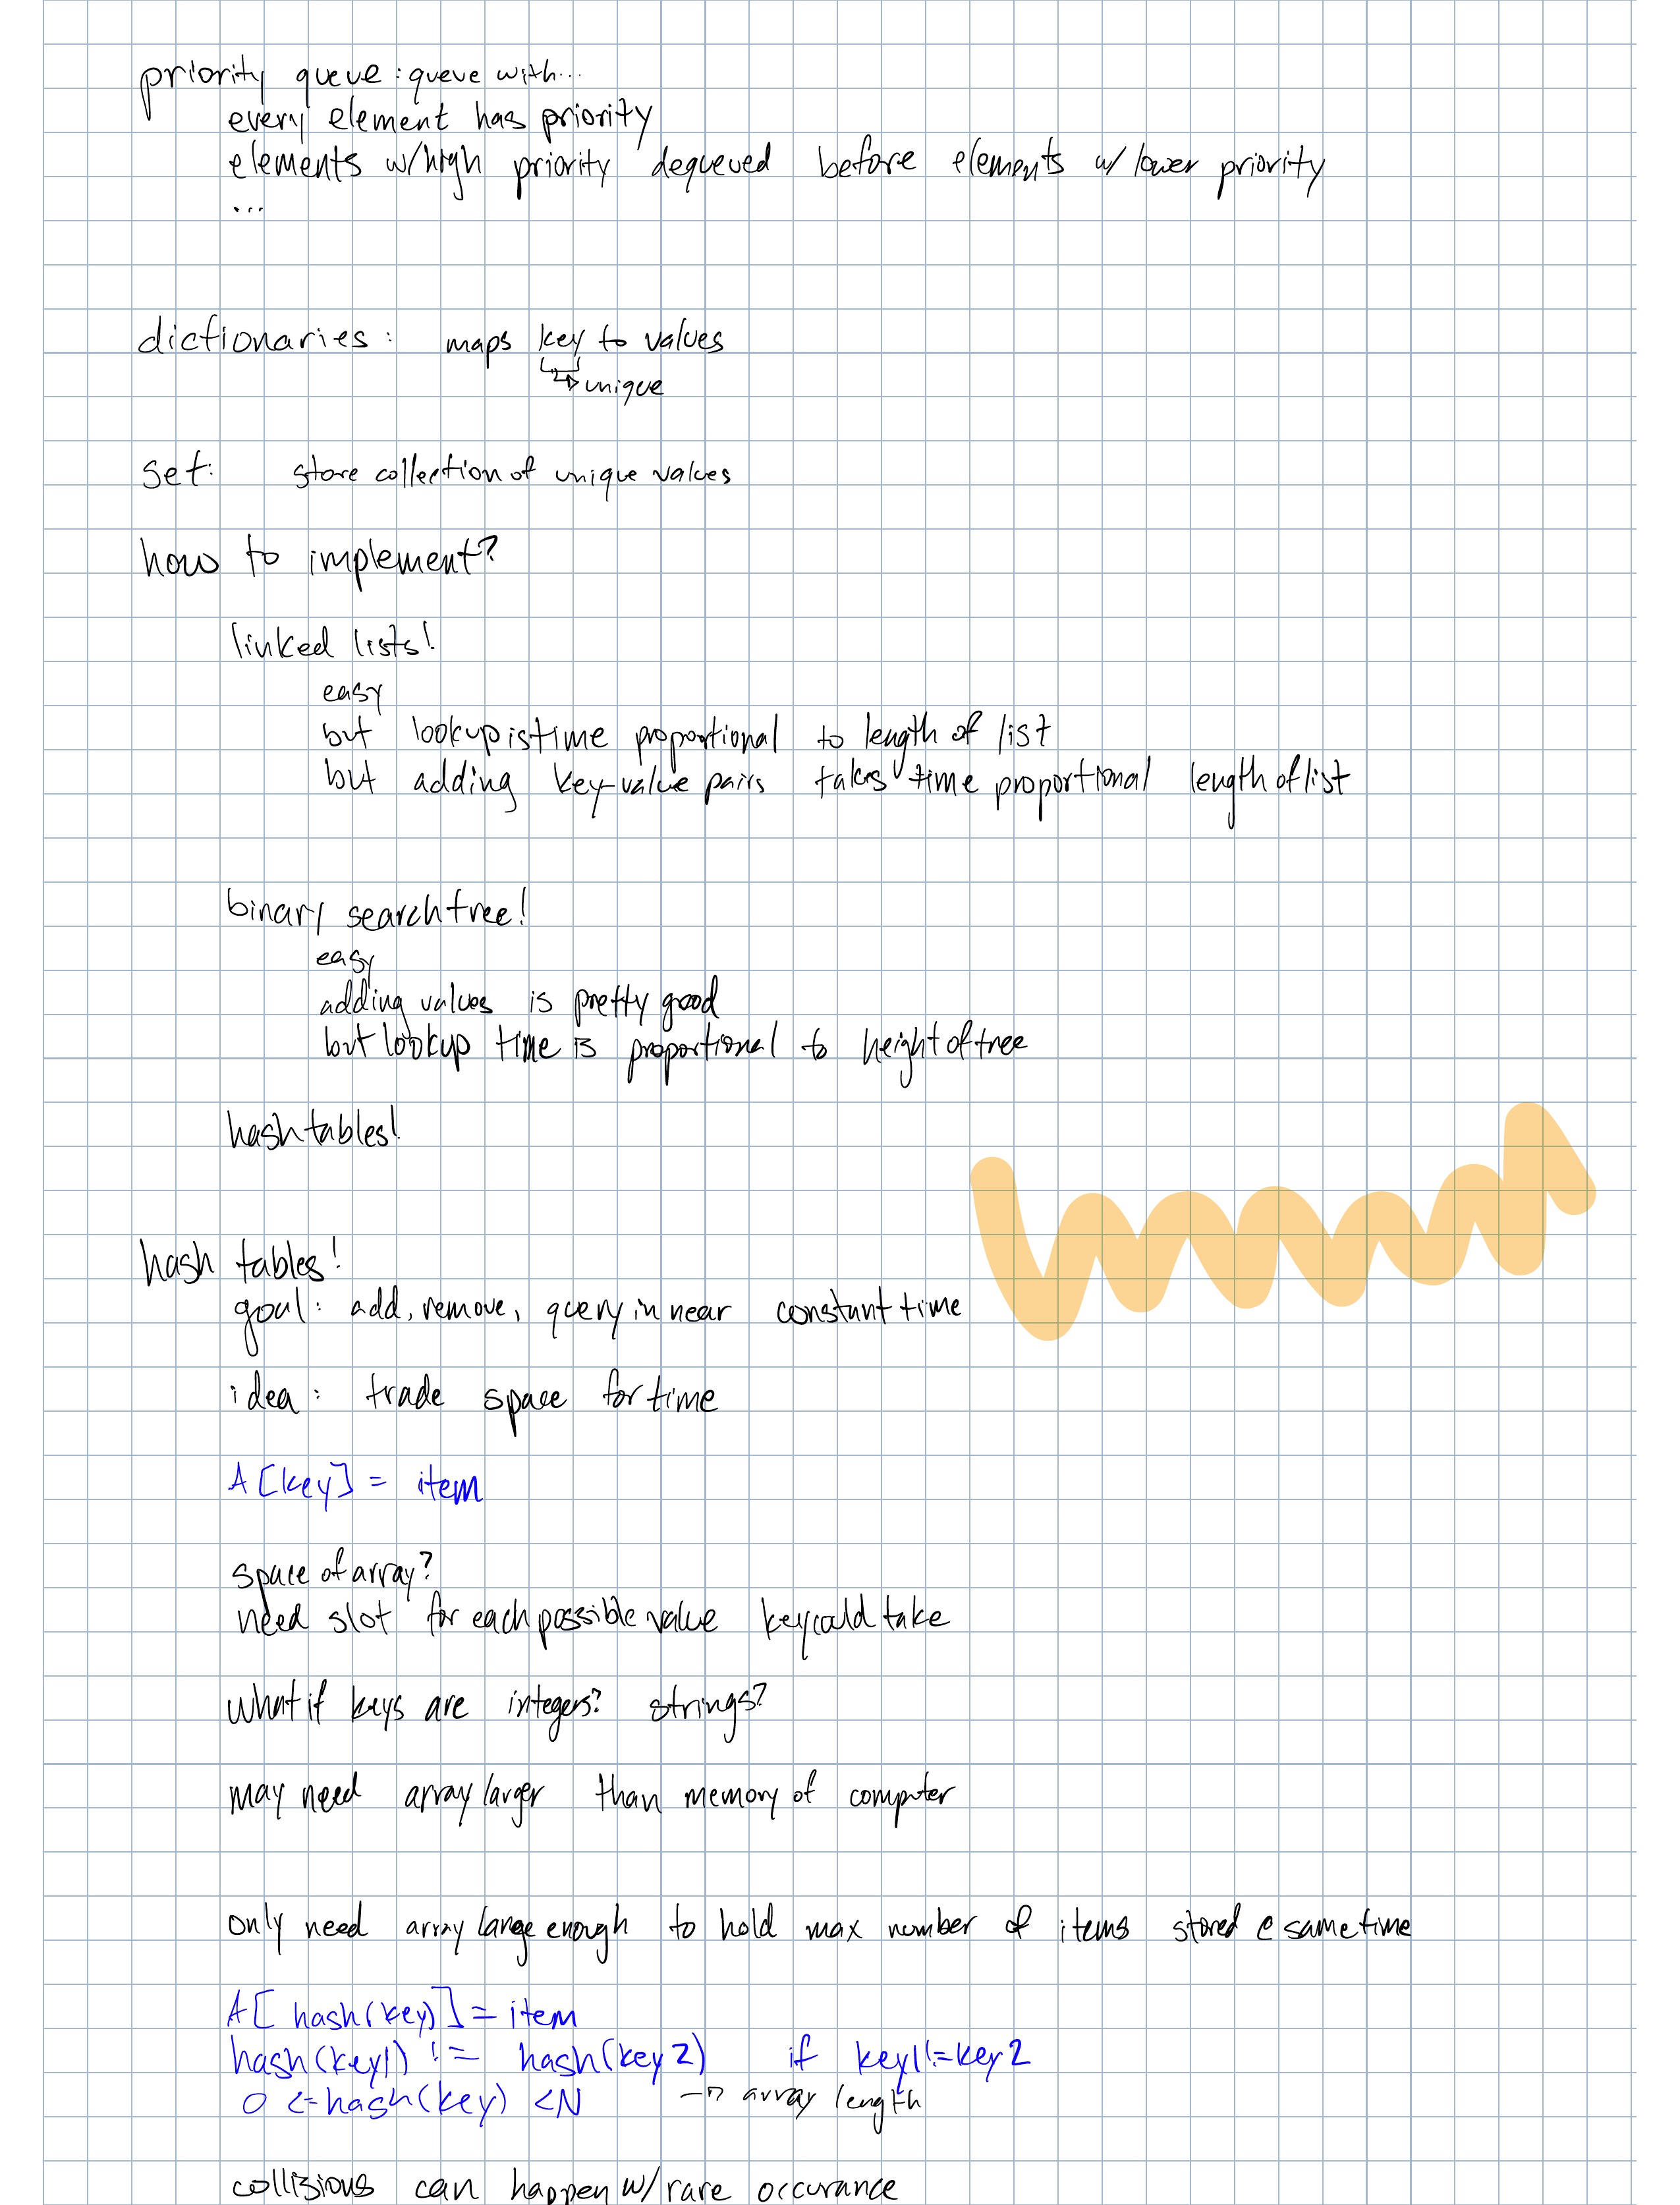 priority queue : queue with...
every element has priority
elements w/high priority dequeued before elements w/ lower priority
...
dictionaries : maps key to values
unique
set: store collection of unique values
how to implement?
linked lists!
easy
but lookup is time proportional to length of list
but adding key-value pairs takes time proportional length of list
binary search tree!
easy
adding values is pretty good
but lookup time is proportional to height of tree
hash tables!
hash tables!
goal: add, remove, query in near constant time
idea: trade space for time
A[key] = item
space of array?
need slot for each possible value key could take
what if keys are integers? strings?
may need array larger than memory of computer
only need array large enough to hold max number of items stored @ same time
A[ hash(key)] = item
hash(key1) != hash(key2) if key1 != key2
0 <= hash(key) < N → array length
collisions can happen w/ rare occurance